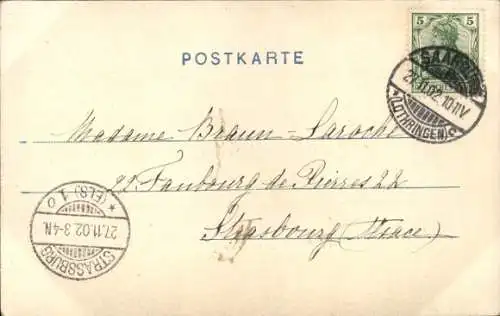 5 5
POSTKARTE
SAARBURG
27.11.02.10-11V
*(LOTHRINGEN)c*
Madame Braun-Laroche
22 Faubourg de Pierres 22
Strasbourg (Alsace)
* (ELS.) 1 o
27.11.02.3-4N.
STRASSBURG